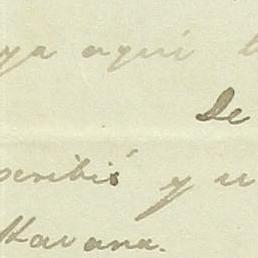 ya aqui
De
scribió y u
Havana.